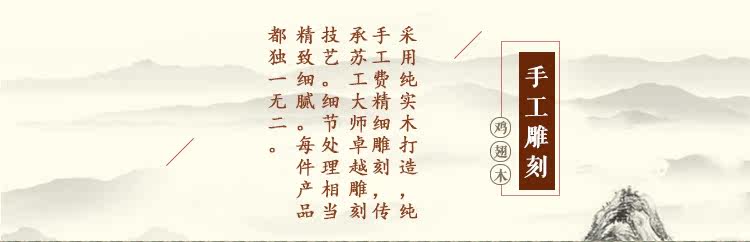 手工雕刻
鸡翅木
采用纯实木打造，纯
手工费精细雕刻，传
承苏工大师卓越雕刻
技艺。细节处理相当
精致细腻。每件产品
都独一无二。